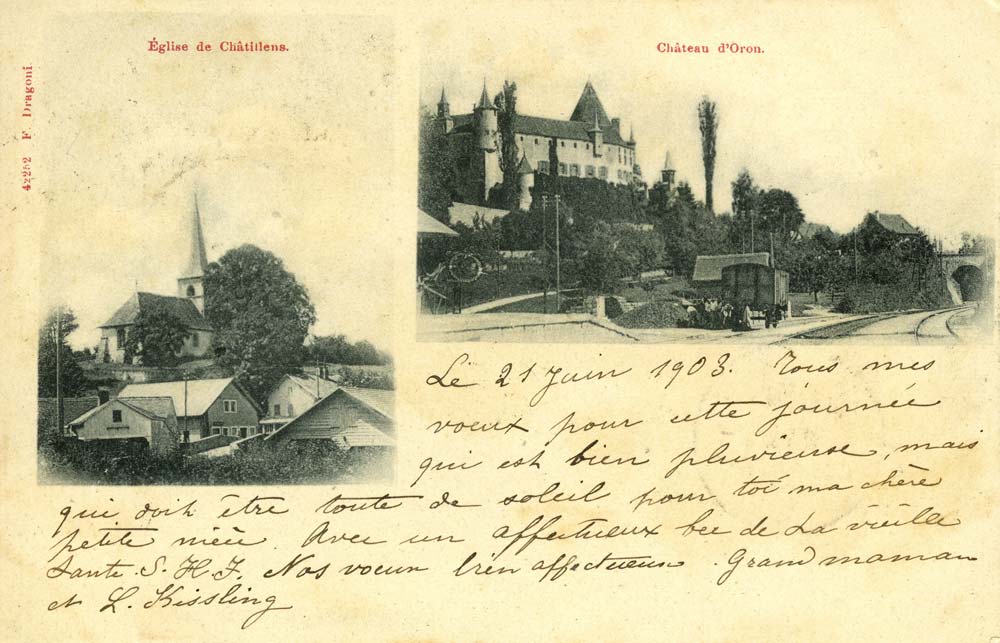 Église de Châtillens.
Château d'Oron.
42252 F. Dragoni
Le 21 Juin 1903. Tous mes
voeux pour cette journée
qui est bien pluvieuse, mais
qui doit être toute de soleil pour toi ma chère
petite nièce. Avec un affectueux bec de ta vieille
tante S. H. J. Nos voeux bien affectueux. Grand maman
et L. Kissling